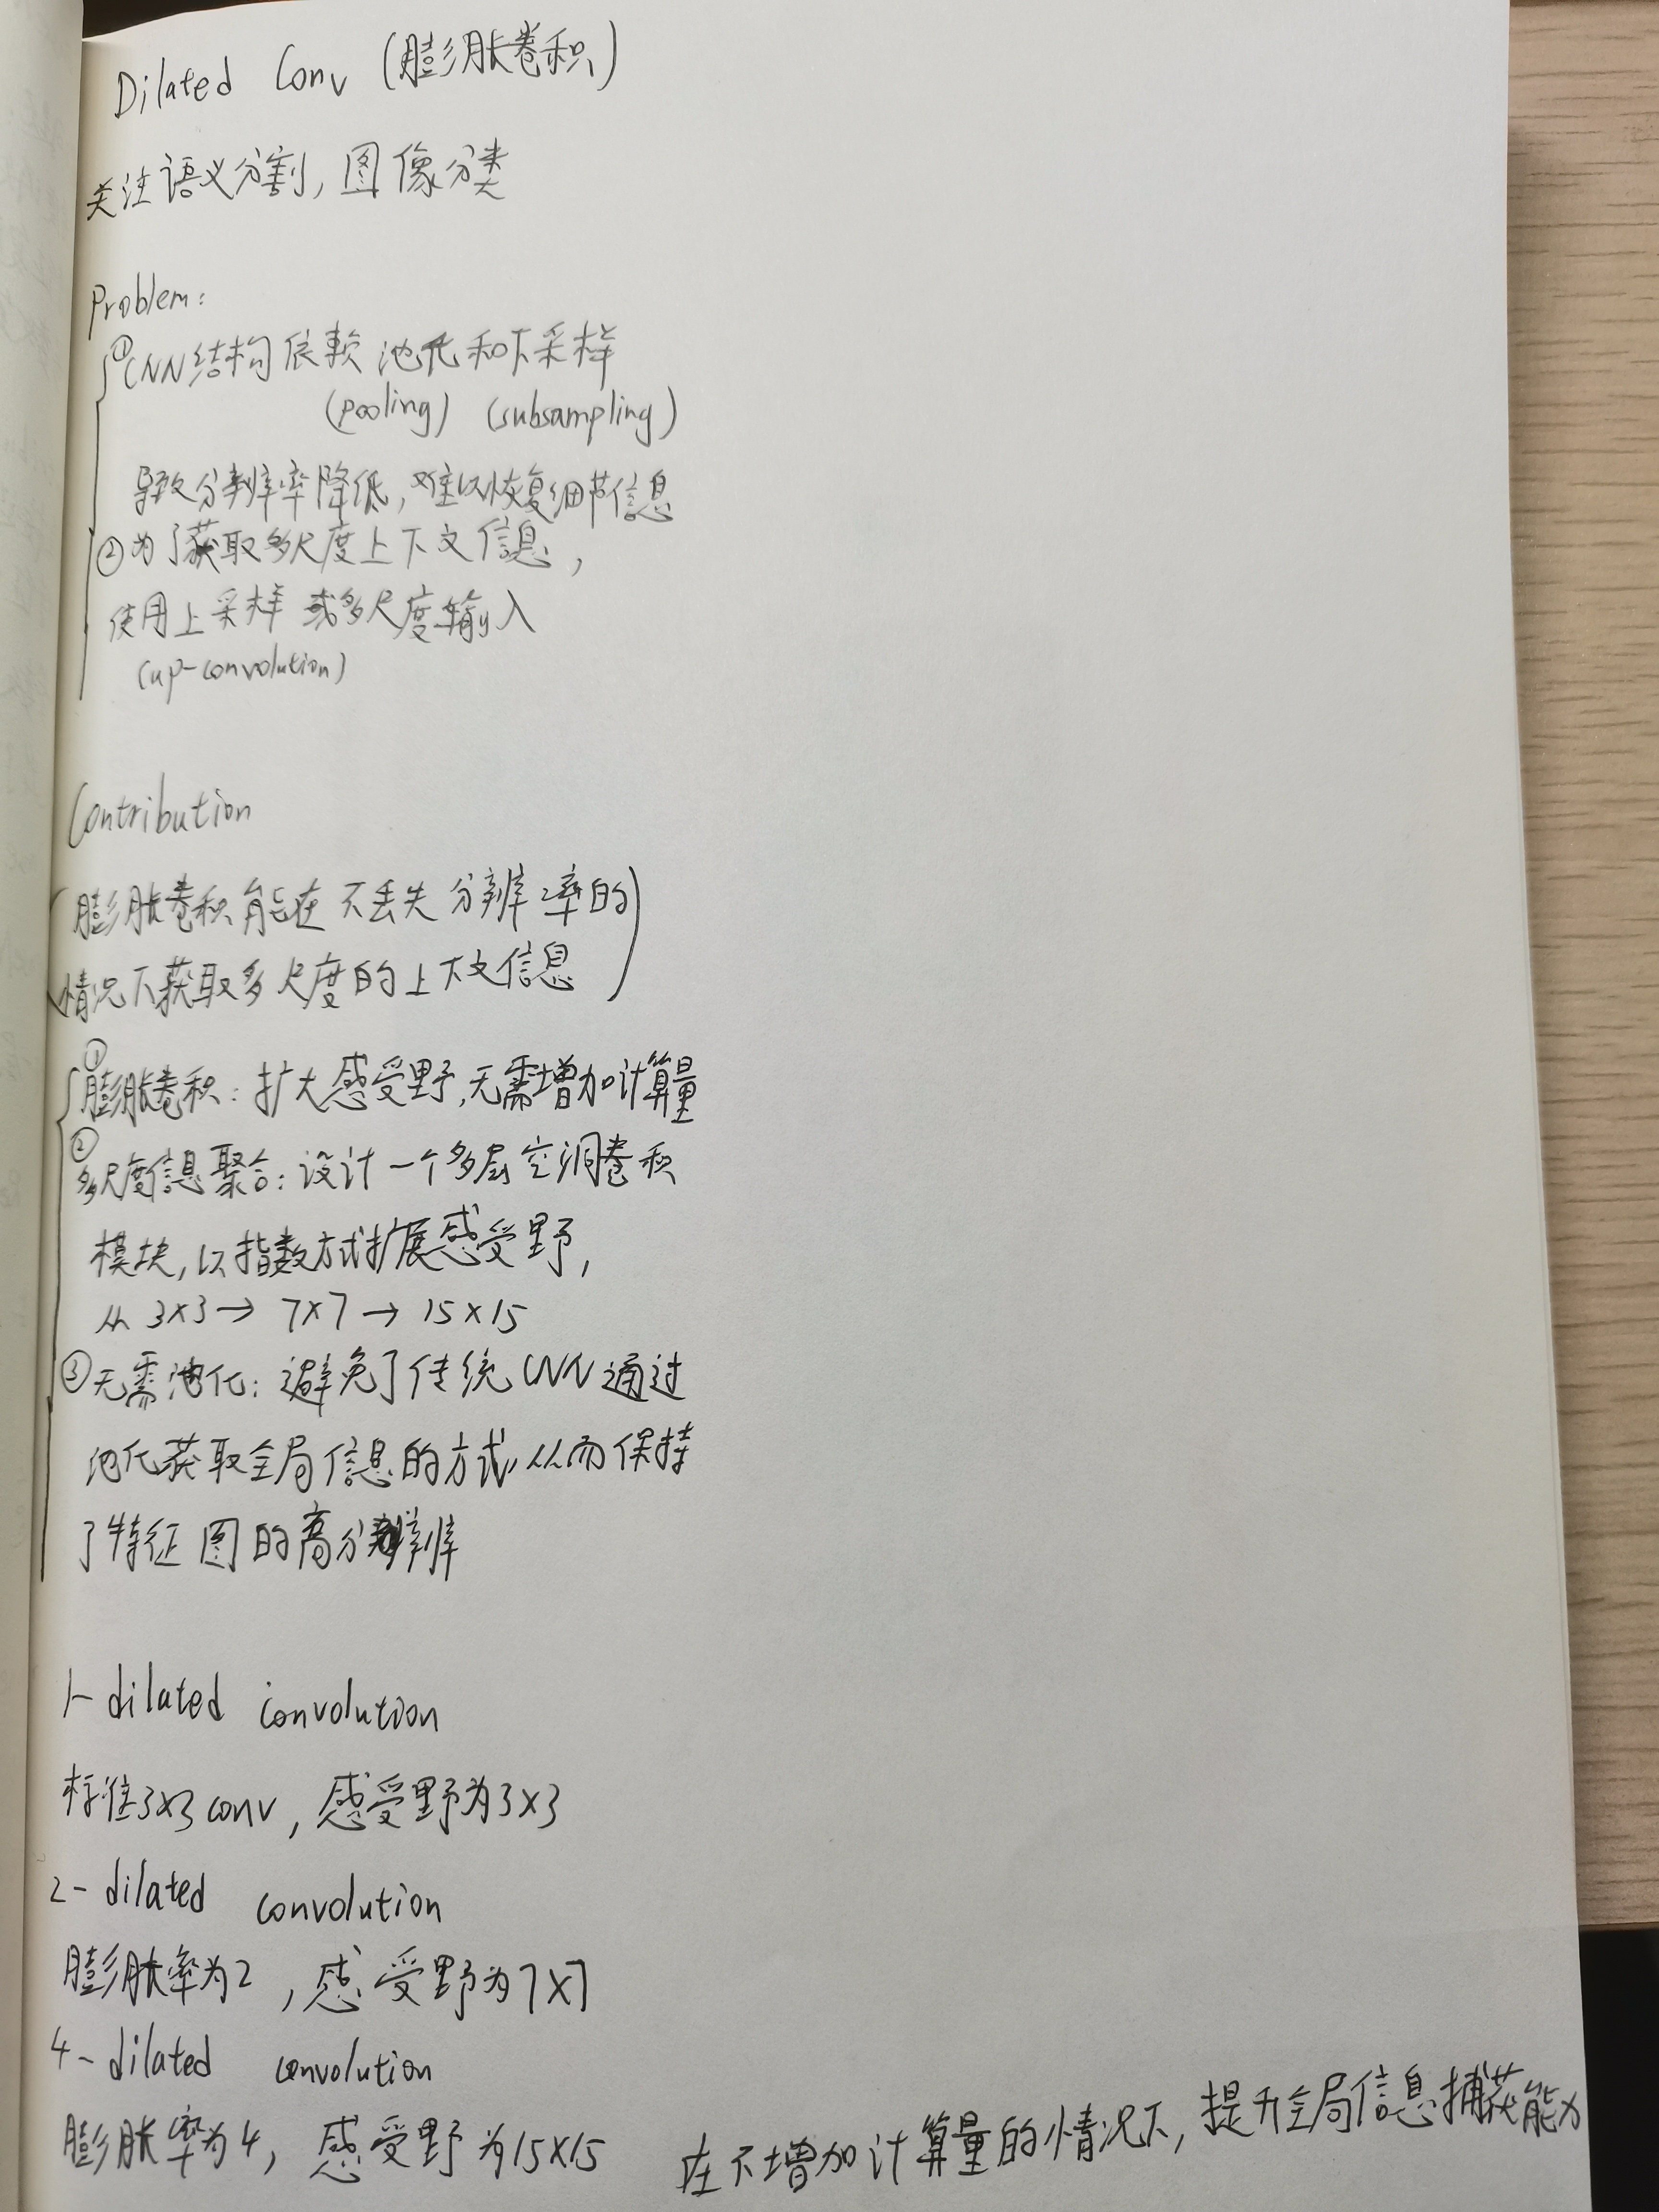 Dilated Conv (膨胀卷积)
关注语义分割, 图像分类
Problem:
①CNN结构依赖池化和下采样
(pooling) (subsampling)
导致分辨率降低, 难以恢复细节信息
②为了获取多尺度上下文信息,
使用上采样或多尺度输入
(up-convolution)
Contribution
膨胀卷积能在不丢失分辨率的
情况下获取多尺度的上下文信息
①膨胀卷积: 扩大感受野, 无需增加计算量
②多尺度信息聚合: 设计一个多层空洞卷积
模块, 以指数方式扩展感受野,
从 3×3→ 7×7→ 15×15
③无需池化: 避免了传统CNN通过
池化获取全局信息的方式, 从而保持
了特征图的高分辨
1-dilated convolution
标准3×3 conv, 感受野为3×3
2-dilated convolution
膨胀率为2, 感受野为7×7
4-dilated convolution
膨胀率为4, 感受野为15×15
在不增加计算量的情况下, 提升全局信息捕获能力